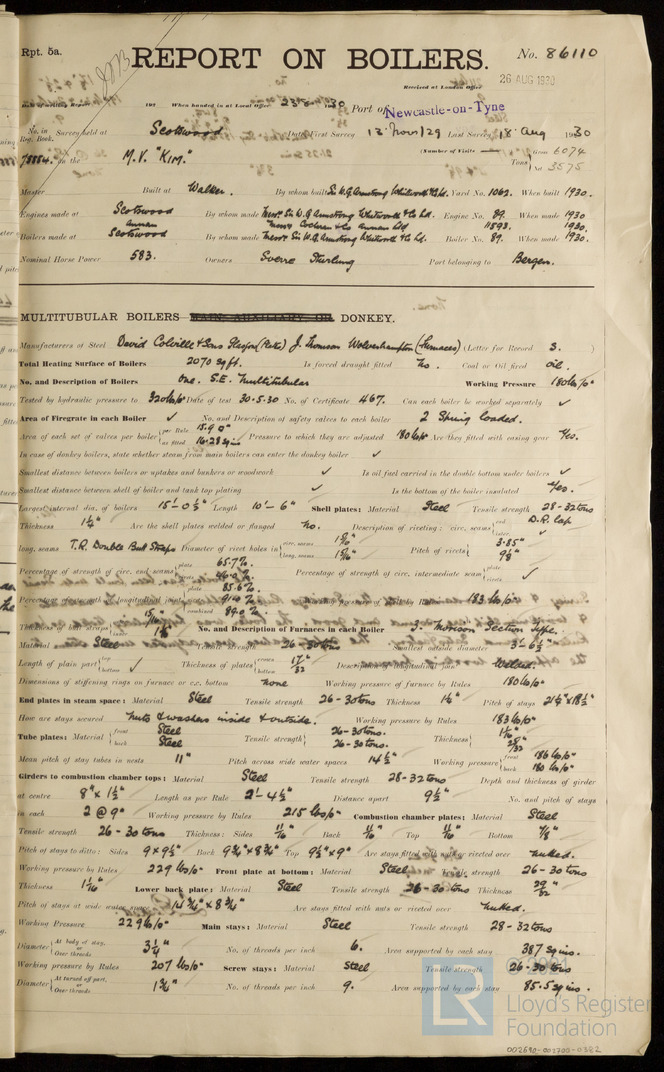 Rpt. 5a.
REPORT ON BOILERS.
No. 86110
Received at London Office
26 AUG 1930
192 When handed in at Local Office 23.8.1930 Port of Newcastle-on-Tyne
No. in Reg. Book. Survey held at Scotswood Date, First Survey 13 Nov/29 Last Survey 18 Aug 1930
75884. on the M.V. "KIM." (Number of Visits Tons Gross 6074
Net 3575
Master Built at Walker. By whom built Sir W.G. Armstrong Whitworth & Co Ltd. Yard No. 1062. When built 1930.
Engines made at Scotswood By whom made Messrs. Sir W.G. Armstrong Whitworth & Co Ltd. Engine No. 89. When made 1930
Annan Messrs Cochran & Co Annan Ltd 11593. 1930.
Boilers made at Scotswood By whom made Messrs. Sir W.G. Armstrong Whitworth & Co Ltd. Boiler No. 89. When made 1930.
Nominal Horse Power 583. Owners Sverre Port belonging to Bergen.
MULTITUBULAR BOILERS MAIN, AUXILIARY, OR DONKEY.
Manufacturers of Steel David Colville & Sons Glasgow (Plate) J. Thomson Wolverhampton (Furnaces) (Letter for Record S.)
Total Heating Surface of Boilers 2070 sq ft. Is forced draught fitted No. Coal or Oil fired oil.
No. and Description of Boilers One. S.E. Multitubular Working Pressure 180 lbs/□"
Tested by hydraulic pressure to 320 lbs/□" Date of test 30.5.30 No. of Certificate 467. Can each boiler be worked separately ✓
Area of Firegrate in each Boiler ✓ No. and Description of safety valves to each boiler 2 Spring loaded.
Area of each set of valves per boiler per Rule 15.9 □"
as fitted 16.28 sq ins Pressure to which they are adjusted 180 lbs/□" Are they fitted with easing gear Yes.
In case of donkey boilers, state whether steam from main boilers can enter the donkey boiler ✓
Smallest distance between boilers or uptakes and bunkers or woodwork ✓ Is oil fuel carried in the double bottom under boilers ✓
Smallest distance between shell of boiler and tank top plating ✓ Is the bottom of the boiler insulated Yes.
Largest internal dia. of boilers 15'-0½" Length 10'-6" Shell plates: Material Steel Tensile strength 28-32 tons
Thickness 1¼" Are the shell plates welded or flanged No. Description of riveting: circ. seams end D.R. lap
inter. ✓
long. seams T.R. Double Butt Straps Diameter of rivet holes in circ. seams
long. seams Pitch of rivets 3.85"
9⅛"
Percentage of strength of circ. end seams plate 65.7%.
rivets Percentage of strength of circ. intermediate seam plate
rivets ✓
Percentage of strength of longitudinal joint plate 85.6%.
rivets
combined 89.0% Working pressure of shell by Rules 183 lbs/□"
Thickness of butt straps outer
inner No. and Description of Furnaces in each Boiler 3. Morison Section Type.
Material Steel Tensile strength 26-30 tons Smallest outside diameter 3'-6½"
Length of plain part top
bottom ✓ Thickness of plates crown
bottom 17/32" Description of longitudinal joint Welded.
Dimensions of stiffening rings on furnace or c.c. bottom None Working pressure of furnace by Rules 180 lbs/□"
End plates in steam space: Material Steel Tensile strength 26-30 tons Thickness Pitch of stays 21½" x 18½"
How are stays secured Nuts & washers inside & outside. Working pressure by Rules 183 lbs/□"
Tube plates: Material front Steel
back Steel Tensile strength 26-30 tons.
26-30 tons. Thickness
Mean pitch of stay tubes in nests 11" Pitch across wide water spaces 14½" Working pressure front 186 lbs/□"
back 180 lbs/□"
Girders to combustion chamber tops: Material Steel Tensile strength 28-32 tons Depth and thickness of girder
at centre 8" x 1½" Length as per Rule 2'-4½" Distance apart 9½" No. and pitch of stays
in each 2 @ 9" Working pressure by Rules 215 lbs/□" Combustion chamber plates: Material Steel
Tensile strength 26-30 tons Thickness: Sides 11/16" Back 11/16" Top 11/16" Bottom 7/8"
Pitch of stays to ditto: Sides 9 x 9½" Back 9¾" x 8¾" Top 9½" x 9" Are stays fitted with nuts or riveted over Nutted.
Working pressure by Rules 229 lbs/□" Front plate at bottom: Material Steel Tensile strength 26-30 tons
Thickness 1 1/16" Lower back plate: Material Steel Tensile strength 26-30 tons Thickness 29/32"
Pitch of stays at wide water space 14¾" x 8¾" Are stays fitted with nuts or riveted over Nutted.
Working Pressure 229 lbs/□" Main stays: Material Steel Tensile strength 28-32 tons
Diameter At body of stay, or Over threads 3¼" No. of threads per inch 6. Area supported by each stay 387 sq ins.
Working pressure by Rules 207 lbs/□" Screw stays: Material Steel Tensile strength 26-30 tons
Diameter At turned off part, or Over threads 1¾" No. of threads per inch 9. Area supported by each stay 85.5 sq ins.
© 2021
LR
Lloyd's Register
Foundation
002690-002700-0382